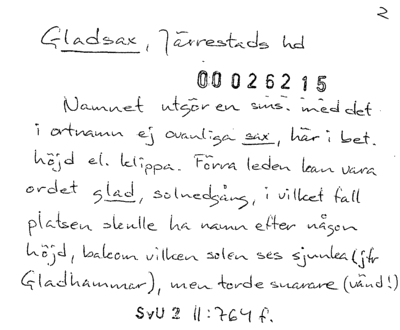 2
Gladsax, Järrestads hd
00026215
Namnet utgör en sms. med det
i ortnamn ej ovanliga sax, här i bet.
höjd el. klippa. Förra leden kan vara
ordet glad, solnedgång, i vilket fall
platsen skulle ha namn efter någon
höjd, bakom vilken solen ses sjunka (jfr
Gladhammar), men torde snarare (vänd!)
SvU 2 11:764 f.